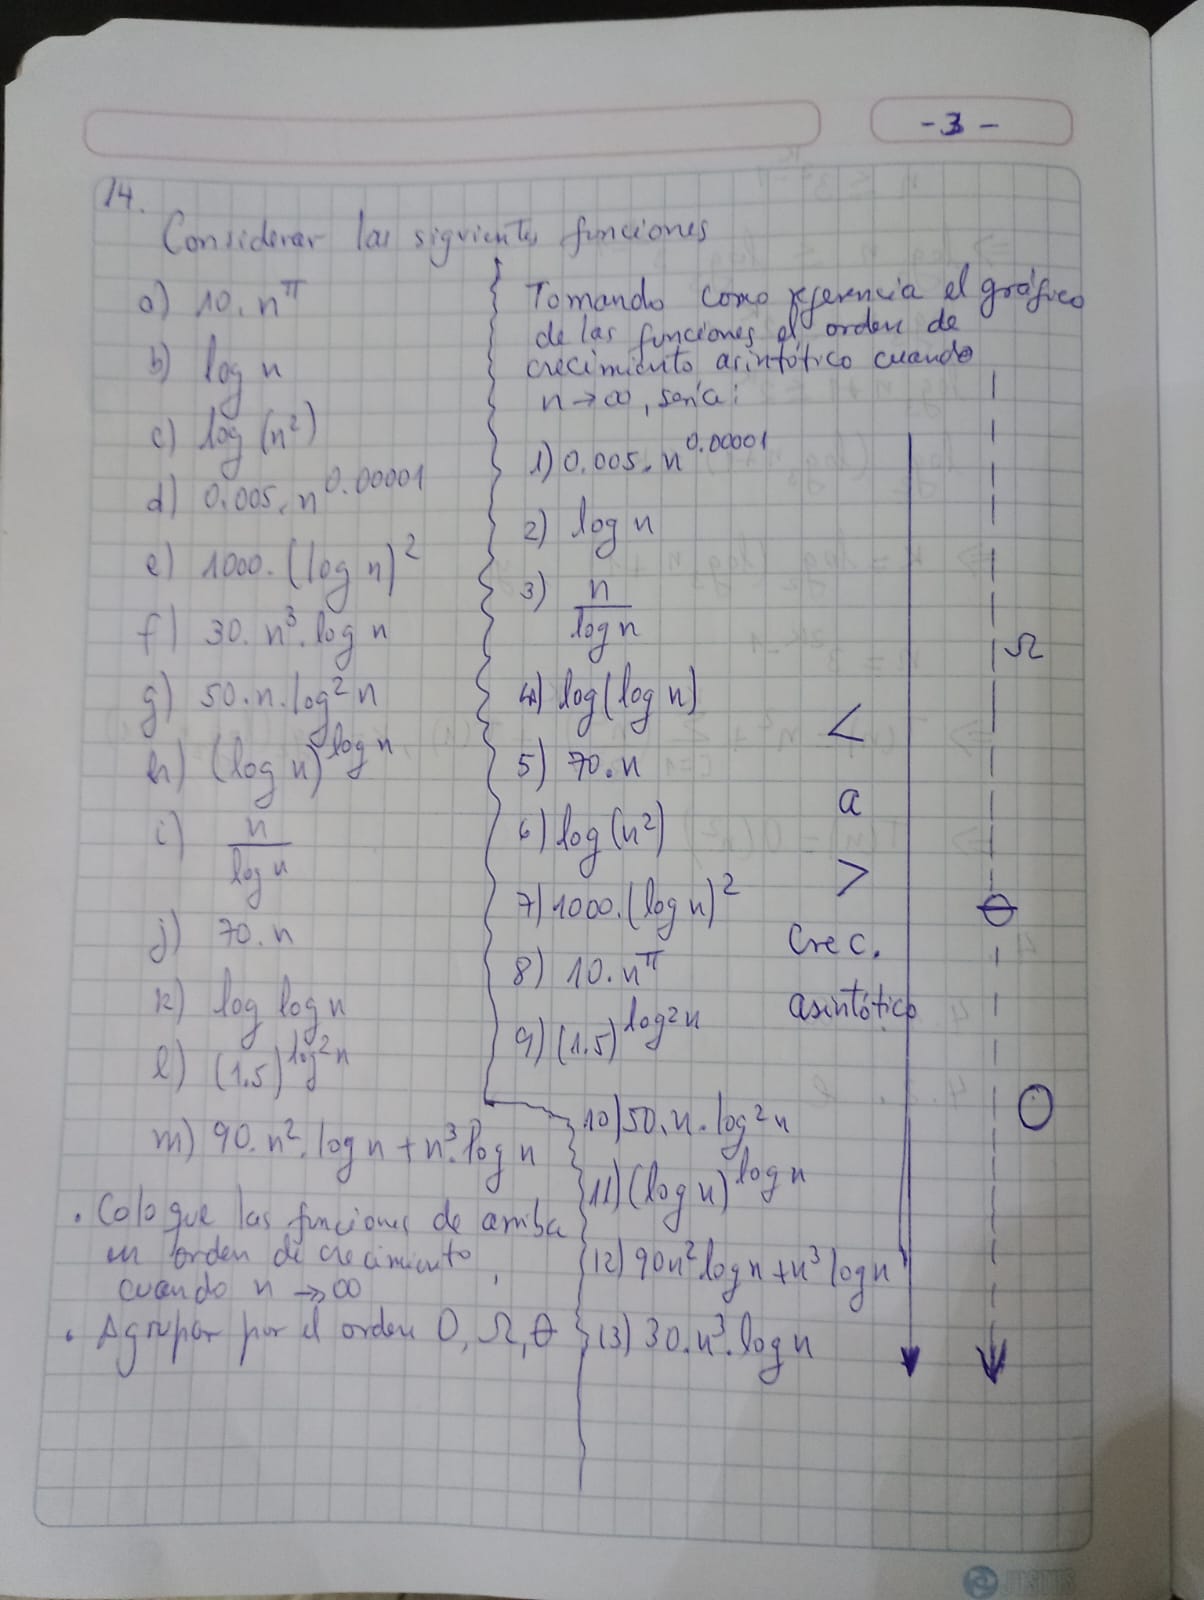 - 3 -
14.
Considerar las siguientes funciones
a) 10. n^π
b) log n
c) log (n²)
d) 0.005. n^0.00001
e) 1000. (log n)²
f) 30. n³. log n
g) 50. n. log² n
h) (log n)^log n
i) n / log n
j) 70. n
k) log log n
l) (1.5)^log² n
m) 90. n². log n + n³. log n
. Coloque las funciones de arriba
en orden de crecimiento,
cuando n → ∞
. Agrupar por el orden O, Ω, Θ
Tomando como referencia el gráfico
de las funciones el orden de
crecimiento asintótico cuando
n → ∞, sería:
1) 0.005. n^0.00001
2) log n
3) n / log n
4) log (log n)
5) 70. n
6) log (n²)
7) 1000. (log n)²
8) 10. n^π
9) (1.5)^log² n
10) 50. n. log² n
11) (log n)^log n
12) 90n² log n + n³ log n
13) 30. n³. log n
<
a
>
Crec.
asintótico
Ω
Θ
O